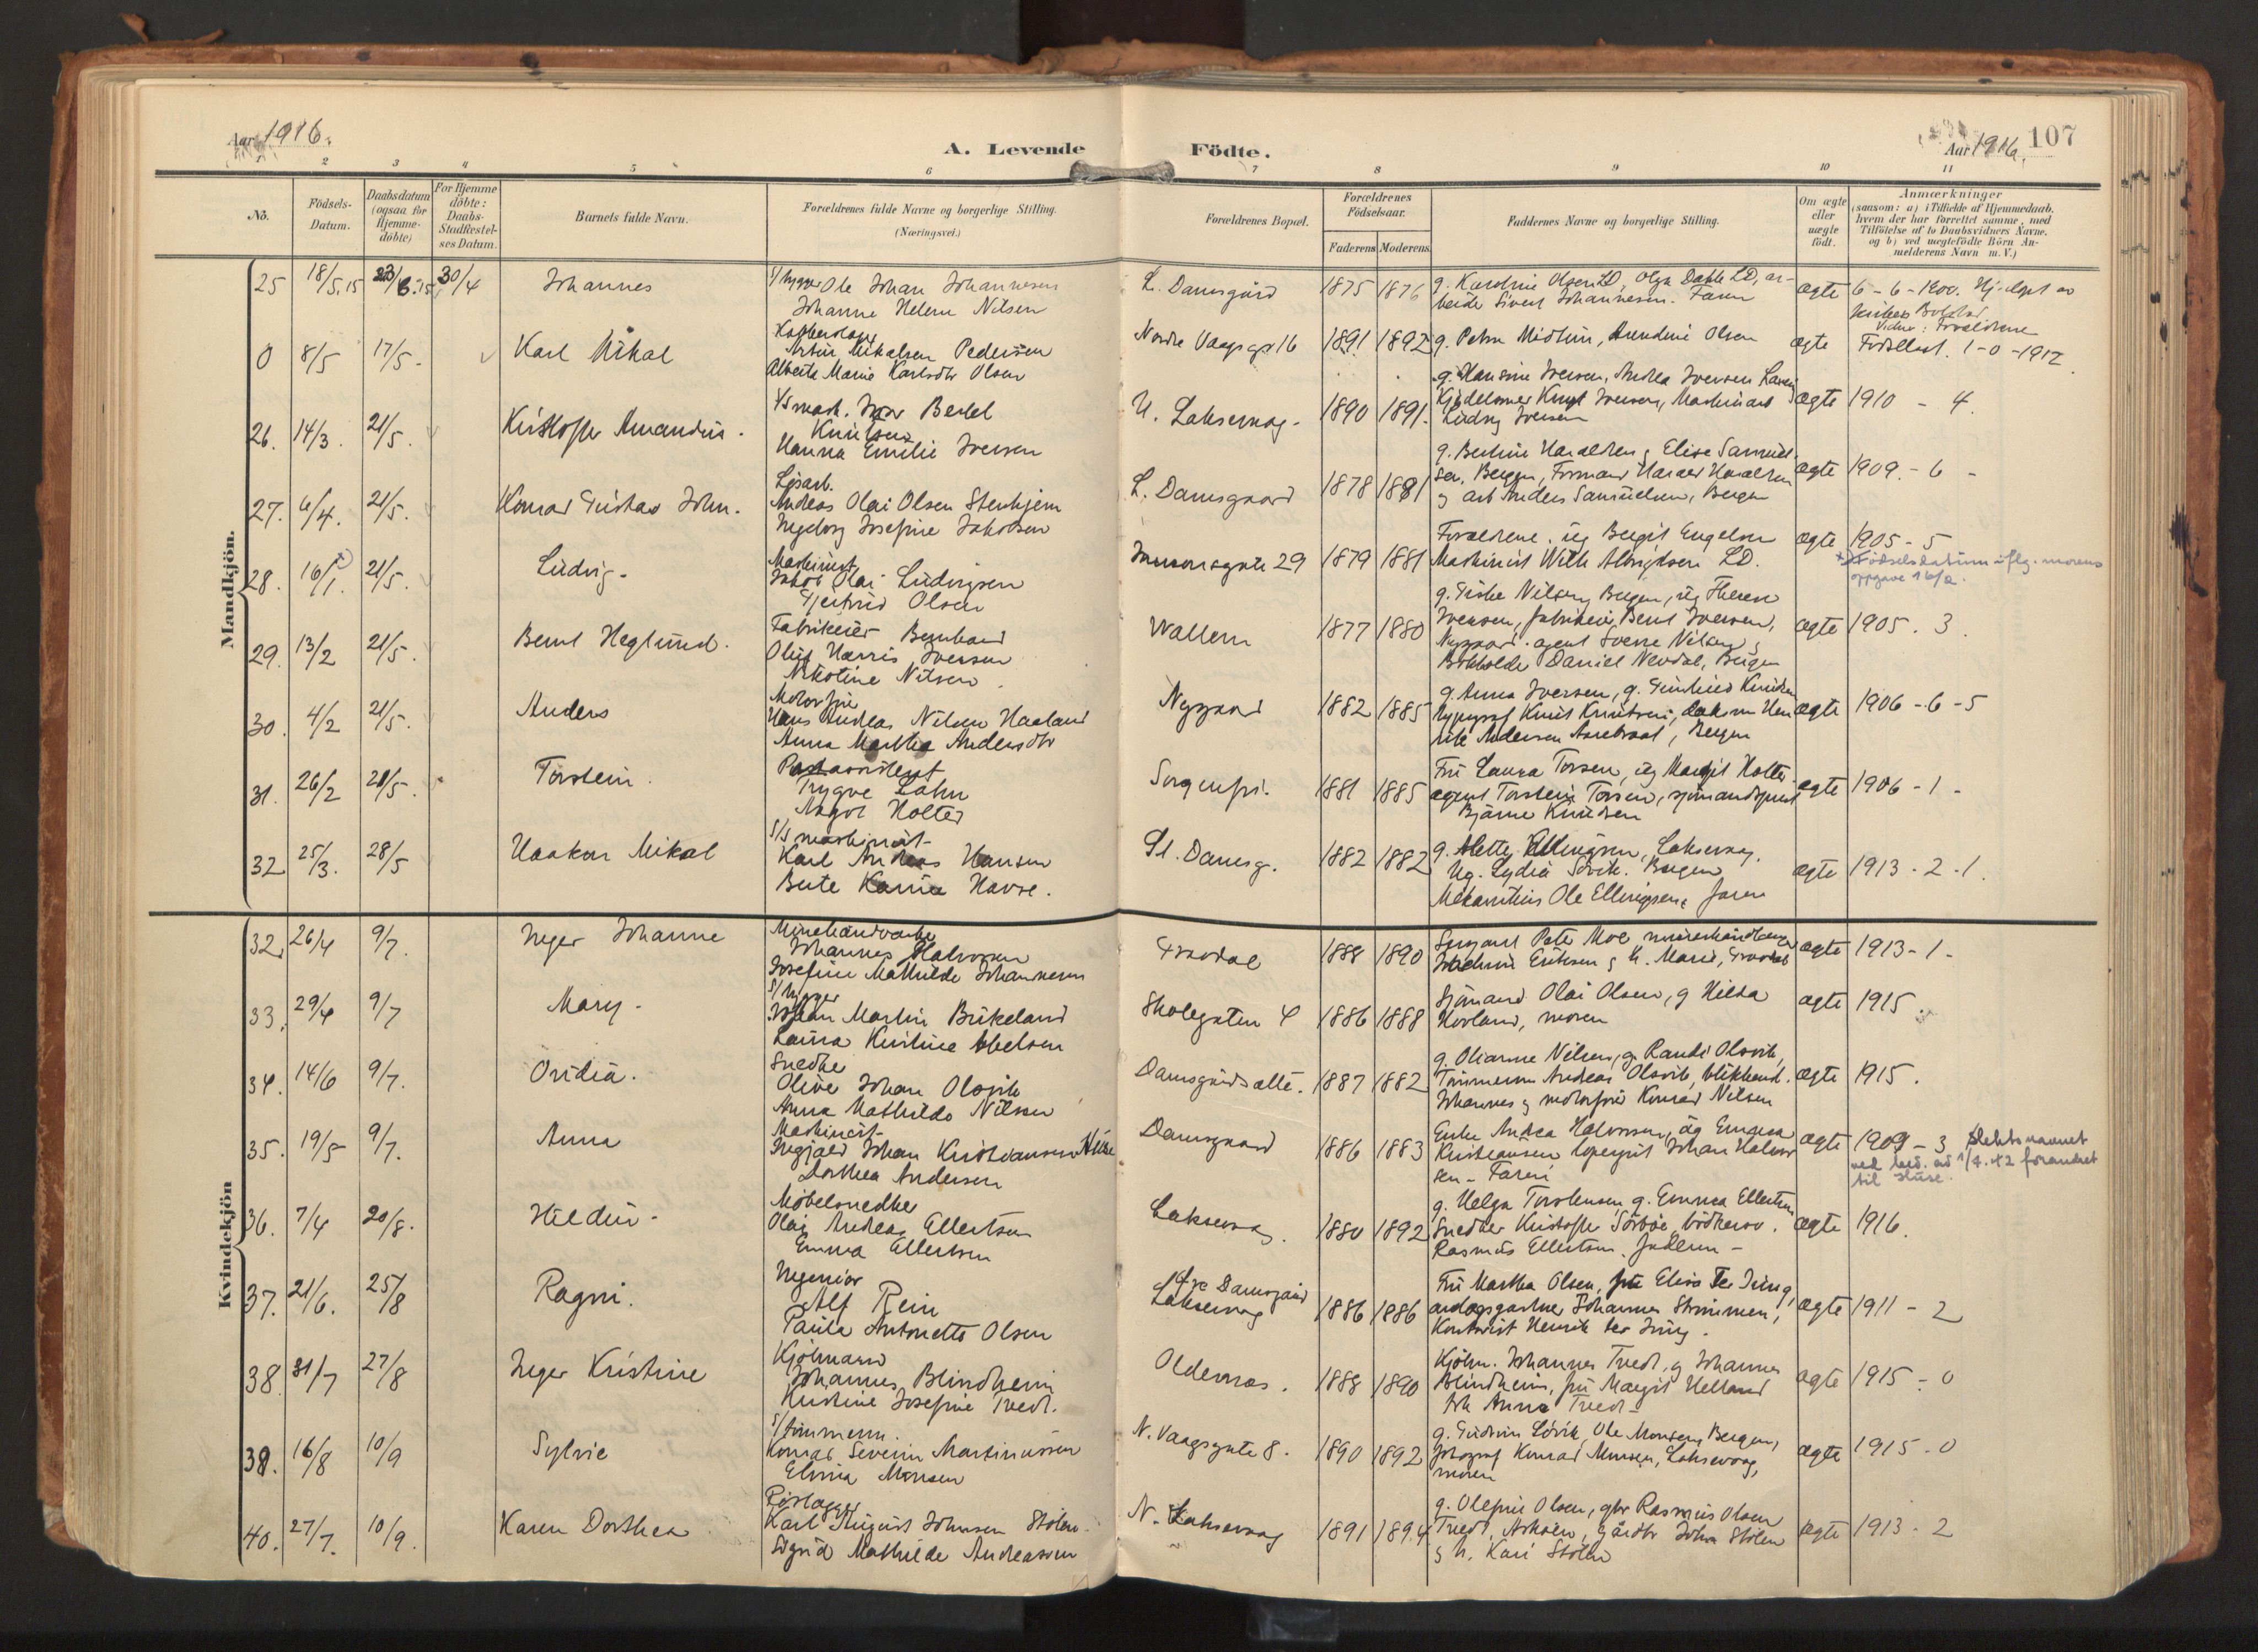 Aar 1916.
A. Levende Födte.
Aar 1916. 107
1 2 3 4 5 6 7 8 9 10 11
No.
Födsels-Datum.
Daabsdatum (ogsaa for Hjemme-döbte)
For Hjemme döbte: Daabs-Stadfestel-ses Datum.
Barnets fulde Navn.
Forældrenes fulde Navne og borgerlige Stilling. (Næringsvei.)
Forældrenes Bopæl.
Forældrenes Födselsaar.
Faderens Moderens
Faddernes Navne og borgerlige Stilling.
Om ægte eller uægte födt.
Anmærkninger
(saasom: a) i Tilfælde af Hjemmedaab, hvem der har forrettet samme, med Tilföielse af to Daabsvidners Navne, og b) ved uægtefödte Börn An-melderens Navn m. V.)
Mandkjön.
25 18/5.15 30/4 Johannes
Ole Johan Johannesen
Johanne Helene Nilsen
L. Damsgård 1875 1876
g. Karoline Olsen LD, Olga Dahle LD, ar-
beider Sivert Johannesen. Faren
ægte 6-6-1900.
0 8/5 17/5 - Karl Mikal
Artur Mikalsen Pedersen
Alberta Marie Karlsdtr Olsen
Nordre Vaagsgt 16 1891 1892
g. Petra Midtun, Olsen
ægte Forældrene
1-0-1912
26. 14/3. 21/5. Kristoffer Amandus.
Bertel
Knutsen
Hanna Emilie Iversen
U. Laksevaag - 1890 1891.
g. Hansine Iversen, Andrea Iversen
Kjedelsmed Knut Iversen, Maskinarb
Ludvig Iversen
ægte 1910 - 4.
27. 6/4. 21/5. Konrad Gustav John.
Løsarb.
Andreas Olai Olsen Stenhjem
Ingeborg Josefine Jakobsen
L. Damsgaard 1878 1881
g. Bertine Haraldsen, Elise Samuel-
sen, Bergen, Formand Harald Haraldsen
og arb Anders Samuelsen, Bergen
ægte 1909. - 6 -
28. 16/1. 21/5. Ludvig -
Maskinist
Jakob Olai Ludvigsen
Gjertrud Olsen
Jansonsgate 29 1879 1881
Forældrene. ug Bergit Engelsen
Maskinist Wilh Albrigtsen LD.
ægte 1905 - 5
x) Födselsdatum iflg. morens
oppgave 16/2.
29. 13/2 21/5. Bernt Heglund.
Fabrikeier Bernhard
Oluf Harris Iversen
Nikoline Nilsen
Wallem 1877 1880
g. Nilsen, Bergen, ug Therese
Iversen, fabrikeier Bernt Iversen,
Nygaard. agent Sverre Nilsen,
Bokholder Daniel Nevdal, Bergen
ægte 1905. 3.
30. 4/2 21/5. Anders
Hans Andreas Nilsen Haaland
Anna Martha Andersdtr
Nygaard 1882 1885
g. Anna Iversen, g. Knutsen
Knut Knutsen, Hen
rik Andersen , Bergen
ægte 1906 - 6 - 5
31. 26/2 21/5. Torstein.
Postassistent
Trygve Lahn
Aagot Holter
Sorgenfri. 1881 1885
Fru Laura Torsen, ug Margit Holter
agent Torstein Torsen, sjömandsprest
Bjarne Knudsen
ægte 1906 - 1 -
32 25/3. 28/5 Haakon Mikal
S/S maskinist
Karl Andreas Hansen
Berte Karine Havre.
St. Damsg. 1882 1882
g. Mette Ellingsen, Laksevaag.
Ug. Lydia Sövik. Bergen
Mekanikus Ole Ellingsen, faren
ægte 1913 - 2 - 1.
Kvindekjön
32. 26/4 9/7. Inger Johanne
Johannes Halvorsen
Josefine Mathilde Johannesen
Fravdal 1888 1890
Sergeant Peter Moe
Eriksen & h. Marie, Fravdal
ægte 1913 - 1 -
33. 29/4 9/7 Mary -
Johan Martin Birkeland
Laura Kristine Abelsen
Skolegaten 4 1886 1888
Sjömand Olai Olsen, g Hilda
Hovland, moren
ægte 1915.
34. 14/6 9/7. Ovidia.
Snedker
Olive Johan Olsvik
Anna Mathilde Nilsen
Damsgårds alle. 1887 1882
g. Olianne Nilsen, g. Randi Olsvik,
Tömmerm Andreas Olsvik, blikkensl.
Johannes & Konrad Nilsen
ægte 1915.
35. 19/5 9/7. Anna
Maskinist
Ingjald Johan Kristiansen
Dorthea Andersen
Damsgaard 1886 1883
Enke Andrea Halvorsen, ug Emma
Kristiansen Johan Halvor
sen - Faren
ægte 1909 - 3 Slektsnavnet
ved bev. av 1/4.42 forandret
til
36. 7/4 20/8. Hildur -
Möbelsnedker
Olai Andreas Ellertsen
Emma Ellertsen
Laksevaag. 1880 1892
g. Helga Torstensen g. Emma Ellertsen
Snedker Kristoffer Sörböe, bödkersv.
Rasmus Ellertsen. Faderen -
ægte 1916.
37. 21/6. 25/8 Ragni.
Ingeniör
Alf Rein
Paula Antonette Olsen
Damsgaard
Laksevaag 1886 1886
Fru Martha Olsen, fru Elise Ter Jung,
anlægsgartner Johannes Strömmen,
Kontorist Henrik ter Jung.
ægte 1911 - 2
38. 31/7 27/8 Inger Kristine
Kjölmand
Johannes Blindheim
Kristine Josefine Tvedt.
Oldernes. 1888 1890
Kjölm. Johannes Tvedt, g Johannes
Blindheim, fru Margit Helland
Anna Tvedt -
ægte 1915 - 0
39. 16/8 10/9 Sylvie
S/tömmerm.
Konrad Severin Martinussen
Elvina Monsen
N. Vaagsgate 8. 1890 1892
g. Gudrun Lövik, Ole Monsen, Bergen,
fotograf Konrad Monsen, Laksevaag,
moren
ægte 1915 - 0
40. 27/7. 10/9. Karen Dorthea
Rörlægger
Karl August Johnsen Stölen
Sigrid Mathilde Andreassen
N. Laksevaag 1891 1894
g. Olefine Olsen, gbr Rasmus Olsen
Tvedt, Askøen, gårdbr John Stölen
& h. Kari Stölen
ægte 1913 - 2